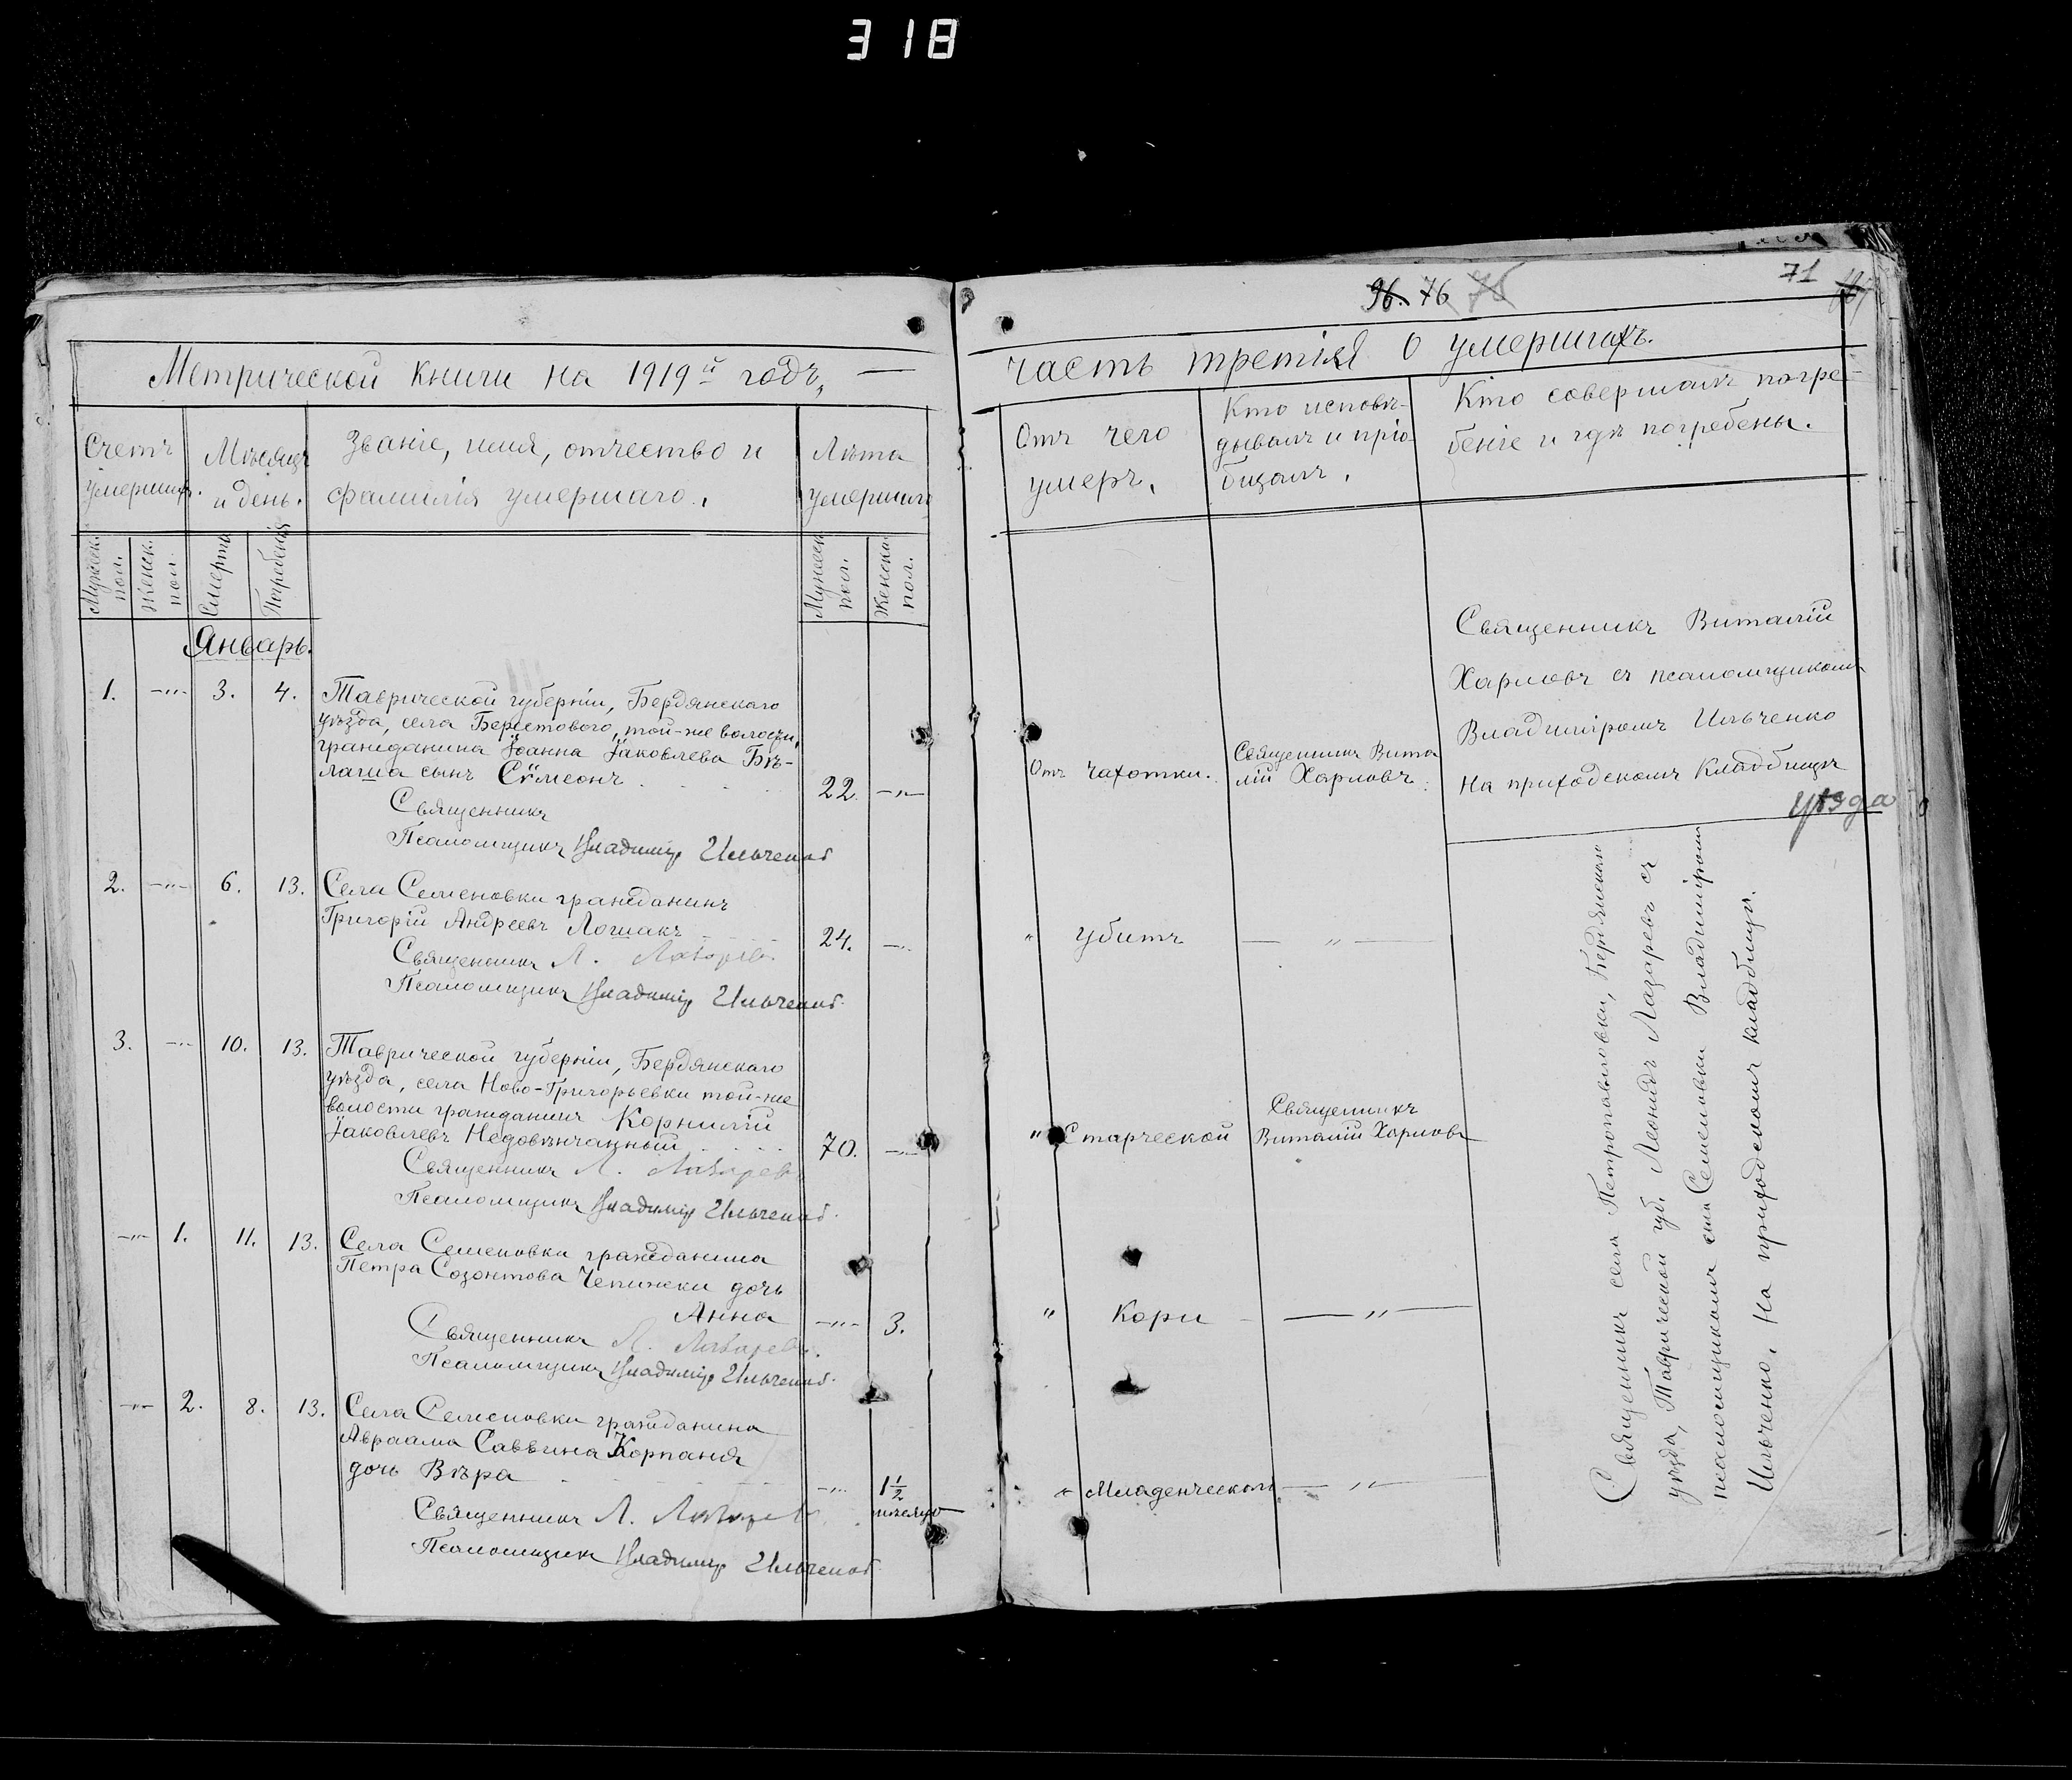 318
96. 76 76
71
Метрической книги на 1919й годъ,
часть третія о умершихъ.
Счетъ умершихъ.
Мѣсяцъ и день.
Званіе, имя, отчество и
фамилія умершаго.
Лѣта умершаго
Отъ чего
умеръ.
Кто исповѣ-
дывалъ и прiо-
бщалъ.
Кто совершалъ погре-
беніе и гдѣ погребены.
Мужеск. пол.
Женск. пол.
Смерти
Погребенія
Мужеск. пол.
Женска пол.
Январь.
1. —"— 3. 4. Таврической губерніи, Бердянскаго
уѣзда, села Берестоваго, той-же волости,
гражданина Іоанна Іаковлева Бѣ-
лаша сынъ Сѵмеонъ 22. —"—
Священникъ
Псаломщикъ Владимір Ильченко
Отъ чахотки.
Священникъ Вита
лій Харловъ.
Священникъ Виталій
Харловъ съ псаломщикомъ
Владиміромъ Ильченко
на приходскомъ кладбищѣ
уѣзда
2. —"— 6. 13. Села Семеновки гражданинъ
Григорій Андреевъ Лошакъ 24. —"—
Священникъ Л. Лазаревъ
Псаломщикъ Владимір Ильченко
" убитъ — " —
3. —"— 10. 13. Таврической губерніи, Бердянскаго
уѣзда, села Ново-Григорьевки той-же
волости гражданинъ Корнилій
Іаковлевъ Недовѣнчанный 70. —"—
Священникъ Л. Лазаревъ
Псаломщикъ Владимір Ильченко
" Старческой
Священникъ
Виталій Харловъ
—"— 1. 11. 13. Села Семеновки гражданина
Петра Созонтова Чепижки дочь
Анна —"— 3.
Священникъ Л. Лазаревъ.
Псаломщикъ Владимір Ильченко
" Кори — " —
—"— 2. 8. 13. Села Семеновки гражданина
Авраама Саввина Корпаня
дочь Вѣра —"— 1½
мѣсяцъ
Священникъ Л. Лазаревъ
Псаломщикъ Владимір Ильченко
" Младенческой — " —
Священникъ села Петропавловки, Бердянскаго
уѣзда, Таврической губ. Леонидъ Лазаревъ съ
псаломщикомъ села Семеновки Владиміромъ
Ильченко, на приходскомъ кладбищѣ.